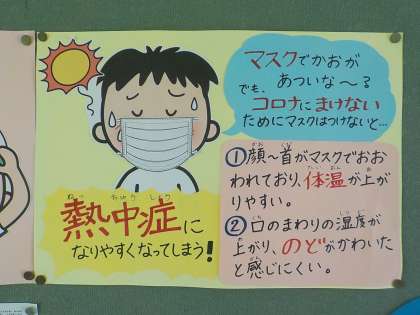 マスクでかおが
あついな〜る
でも、
コロナにまけない
ためにマスクはつけないと…
①顔〜首がマスクでおお
われており、体温が上が
りやすい。
②口のまわりの湿度が
上がり、のどがかわいた
と感じにくい。
熱中症に
なりやすくなってしまう!